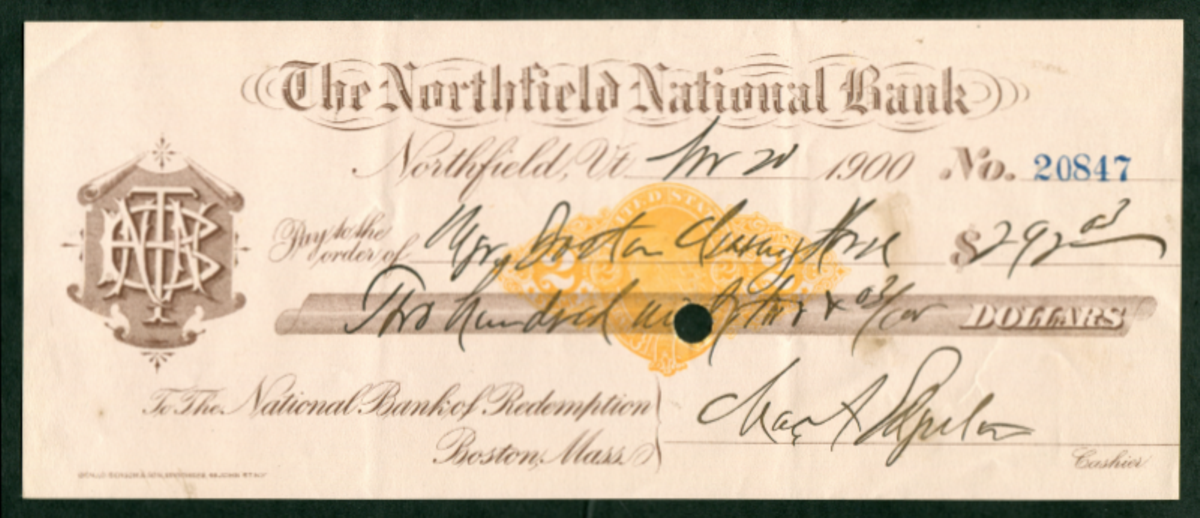 The Northfield National Bank
Northfield, Vt. Nov 20 1900 No. 20847
Pay to the order of Mgr. Boston Clearing House $292 03
Two hundred ninety two & 03/100 DOLLARS
To The National Bank of Redemption
Boston, Mass.
Chas A
Cashier
NTNB
UNITED STATES
2 2 2 2